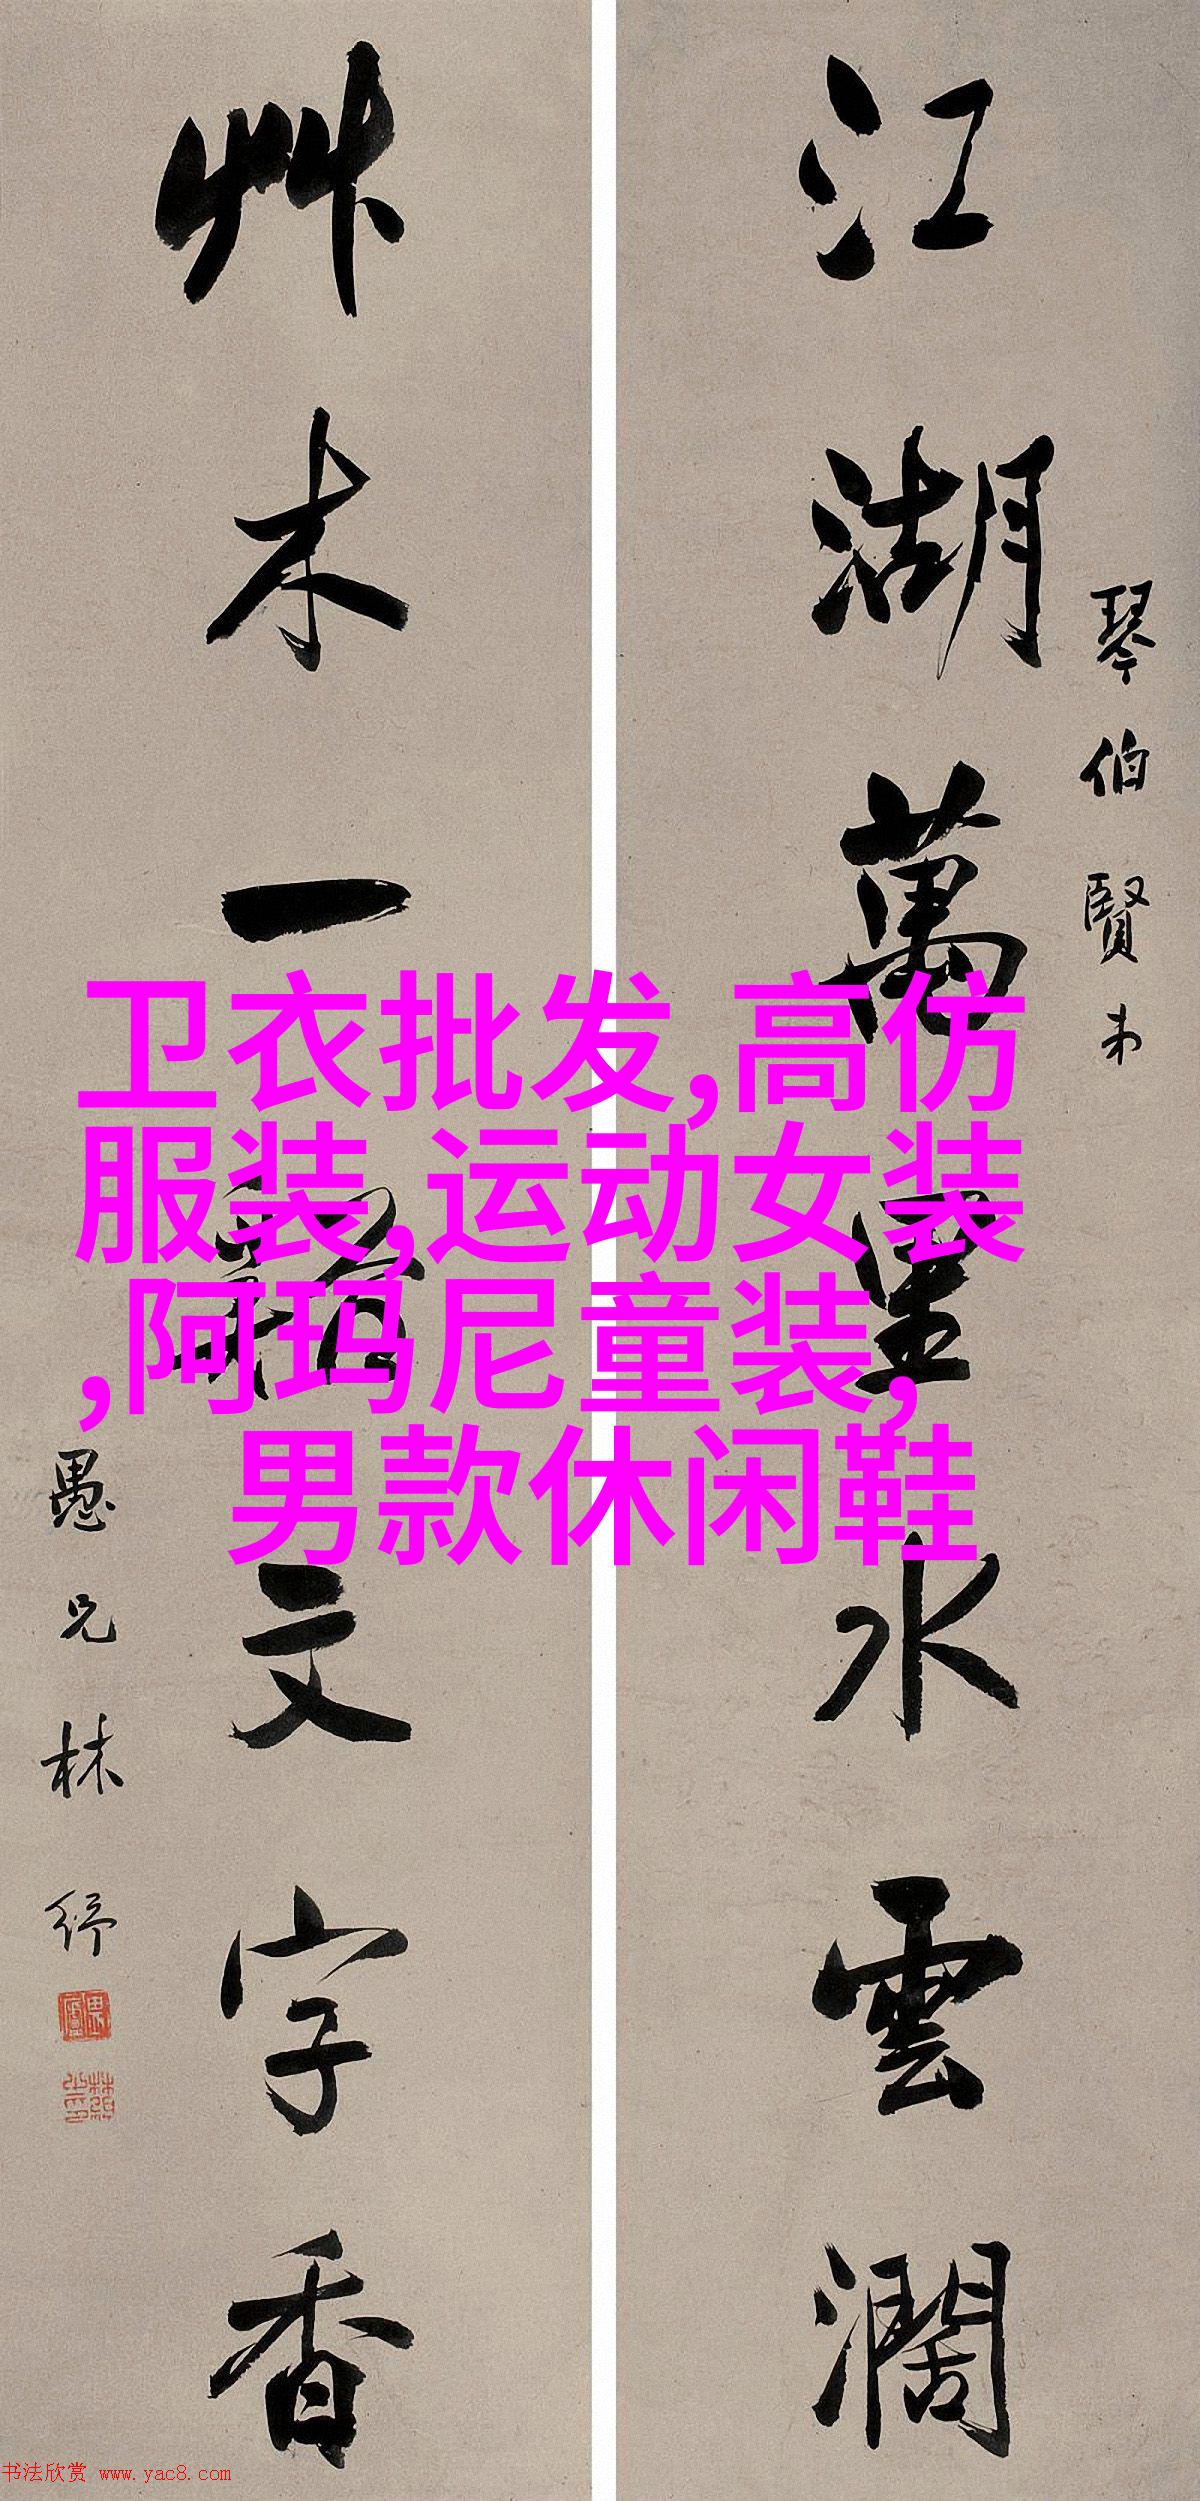 江湖萬里水雲濶
琴伯賢弟
草木一籍文字香
愚兄林紓
卫衣批发,高仿
服装,运动女装
,阿玛尼童装,
男款休闲鞋
书法欣赏 www.yac8.com